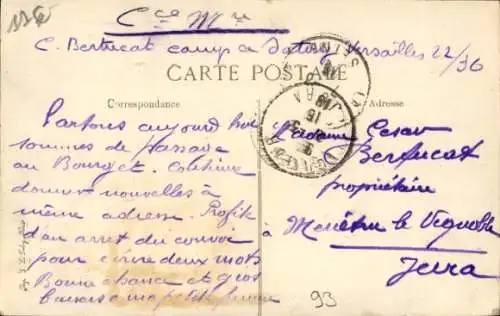 Cce Mre
C. Bertucat camp de Satory Versailles 22/36
CARTE POSTALE
Correspondance
Adresse
Partons aujourd'hui
sommes de passage
au Bourget. Continue
donner nouvelles à
même adresse. Profite
d'un arret du convoi
pour écrire deux mots
Bonne chance et gros
baisers a ma petite femme
Madame Cesar
Bertucat
propriétaire
à Menétru le Vignoble
Jura
93